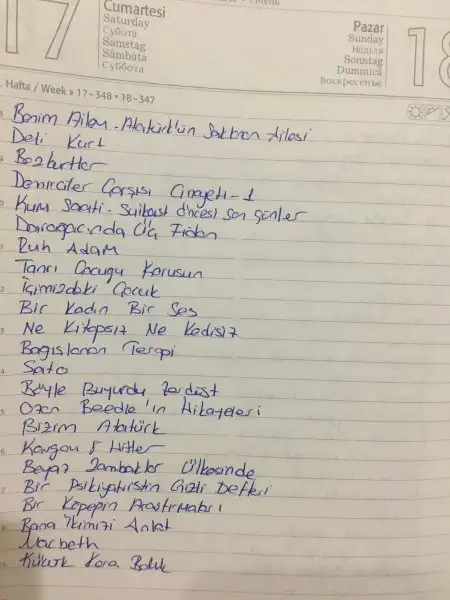 17
Cumartesi
Saturday
Субота
Samstag
Sâmbăta
Суббота
Pazar
Sunday
Неділя
Sonntag
Duminică
Воскресенье
18
. Hafta / Week » 17-348 • 18-347
Benim Ailem - Atatürk'ün Saklanan Ailesi
Deli Kurt
Bozkurtlar
Demirciler Çarşısı Cinayeti - 1
Kum Saati - Suikast öncesi son günler
Darağacında Üç Fidan
Ruh Adam
Tanrı Çocuğu Korusun
İçimizdeki Çocuk
Bir Kadın Bir Ses
Ne Kitapsız Ne Kedisiz
Bağışlanan Terapi
Şato
Böyle Buyurdu Zerdüşt
Ozan Beedle'ın Hikayeleri
Bizim Atatürk
Kavgam Hitler
Beyaz Zambaklar Ülkesinde
Bir Psikiyatristin Gizli Defteri
Bir Köpeğin Araştırmaları
Bana İkimizi Anlat
Macbeth
Küçük Kara Balık